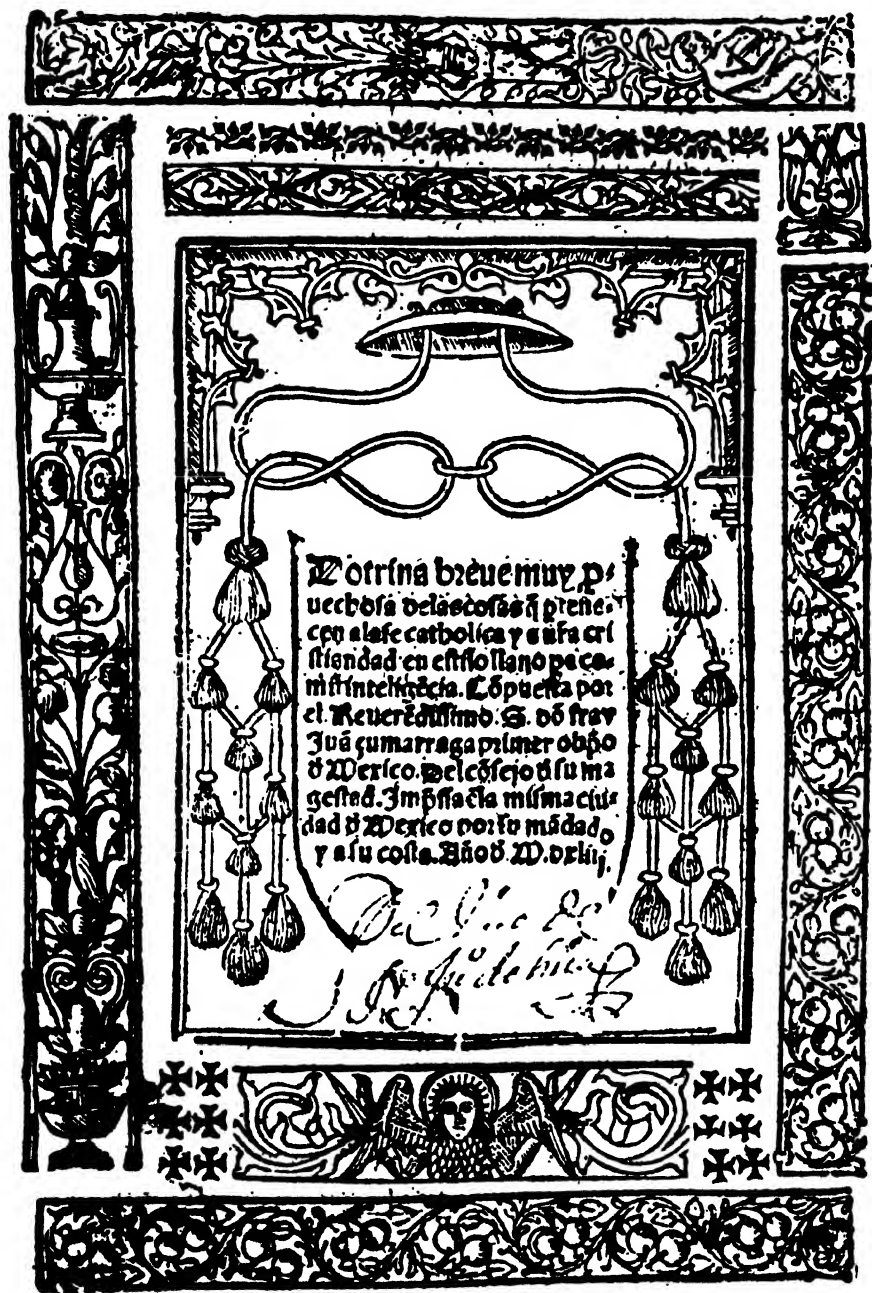 Dotrina breue muy p̱-
uechosa delas cosas q̃ ꝑtene-
cen ala fe catholica y a nr̃a cri
stiandad en estilo llano ꝑa co-
mũ intelligẽcia. Cõpuesta por
el. Reuerẽdissimo. S. dõ fray
Juã çumarraga primer obp̃o
d̃ Mexico. Del cõsejo d̃ su ma
gestad. Impssa ẽla misma ciu-
dad d̃ Mexico por su mãdado
y a su costa. Año d̃. M.dxliij.